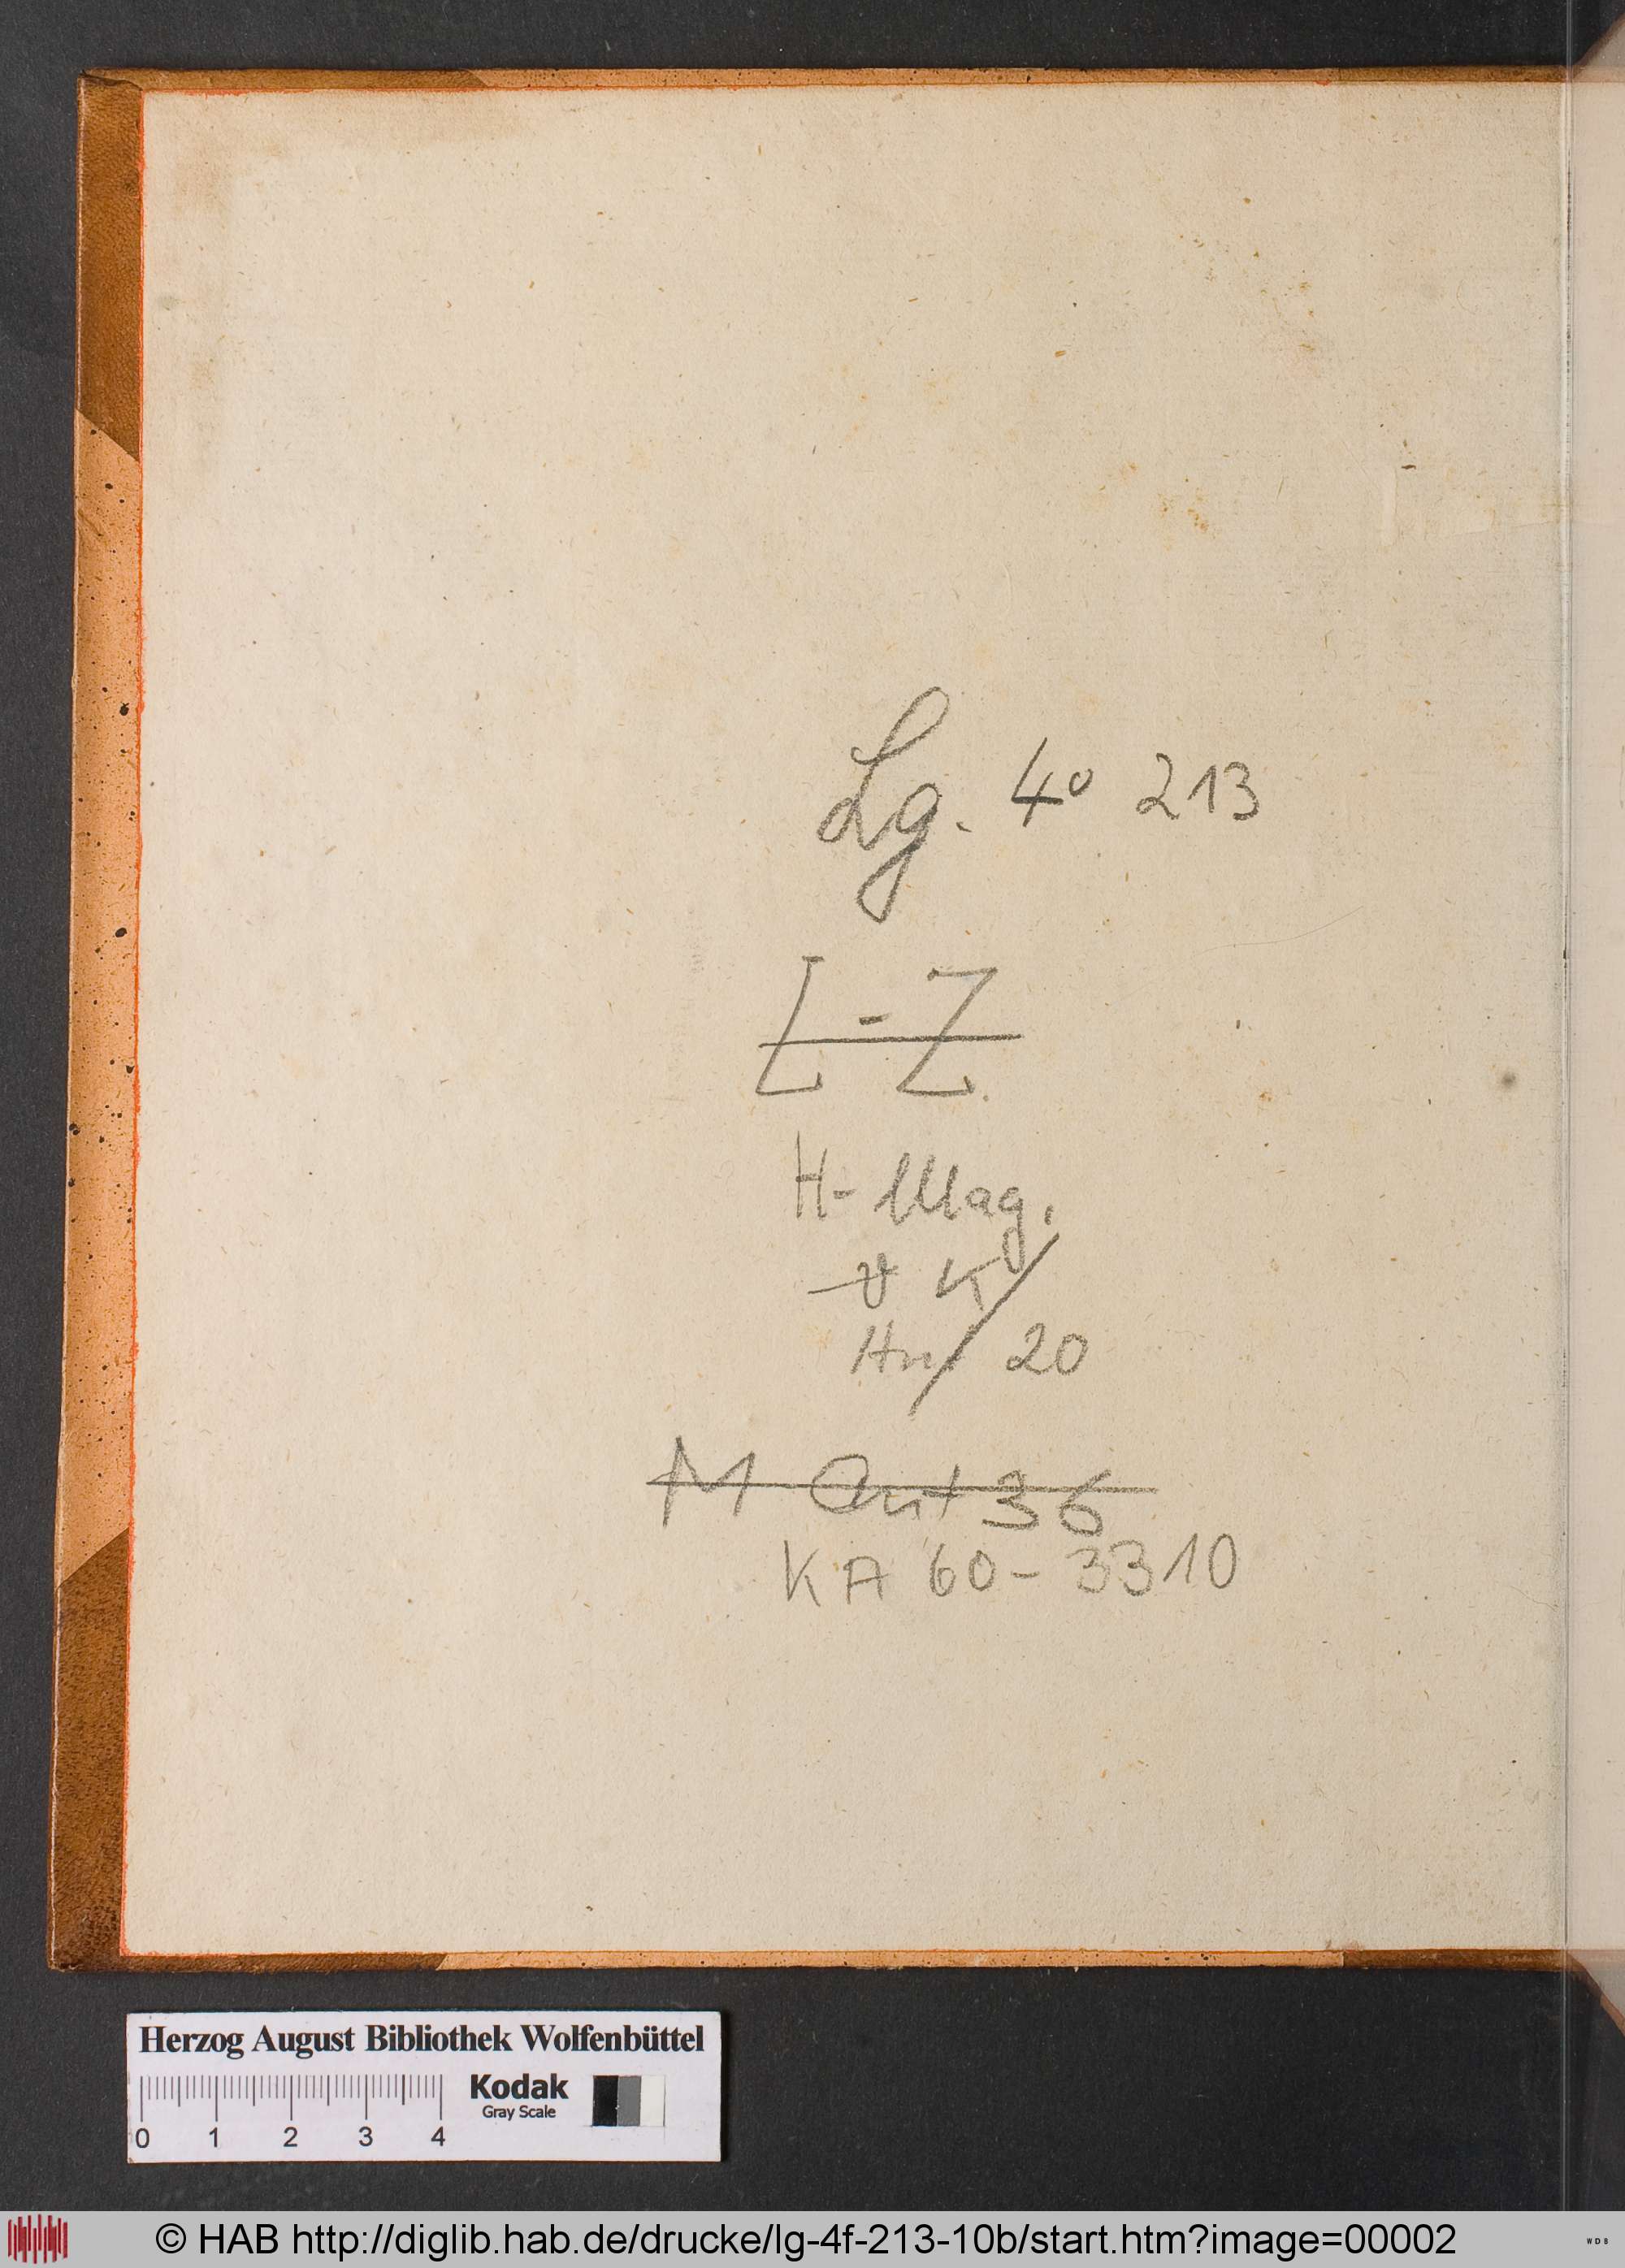 Lg. 4° 213
L - Z
H- Mag.
K
20
M Ant 36
KA 60 - 3310
Herzog August Bibliothek Wolfenbüttel
Kodak
Gray Scale
0 1 2 3 4
© HAB http://diglib.hab.de/drucke/lg-4f-213-10b/start.htm?image=00002
WDB